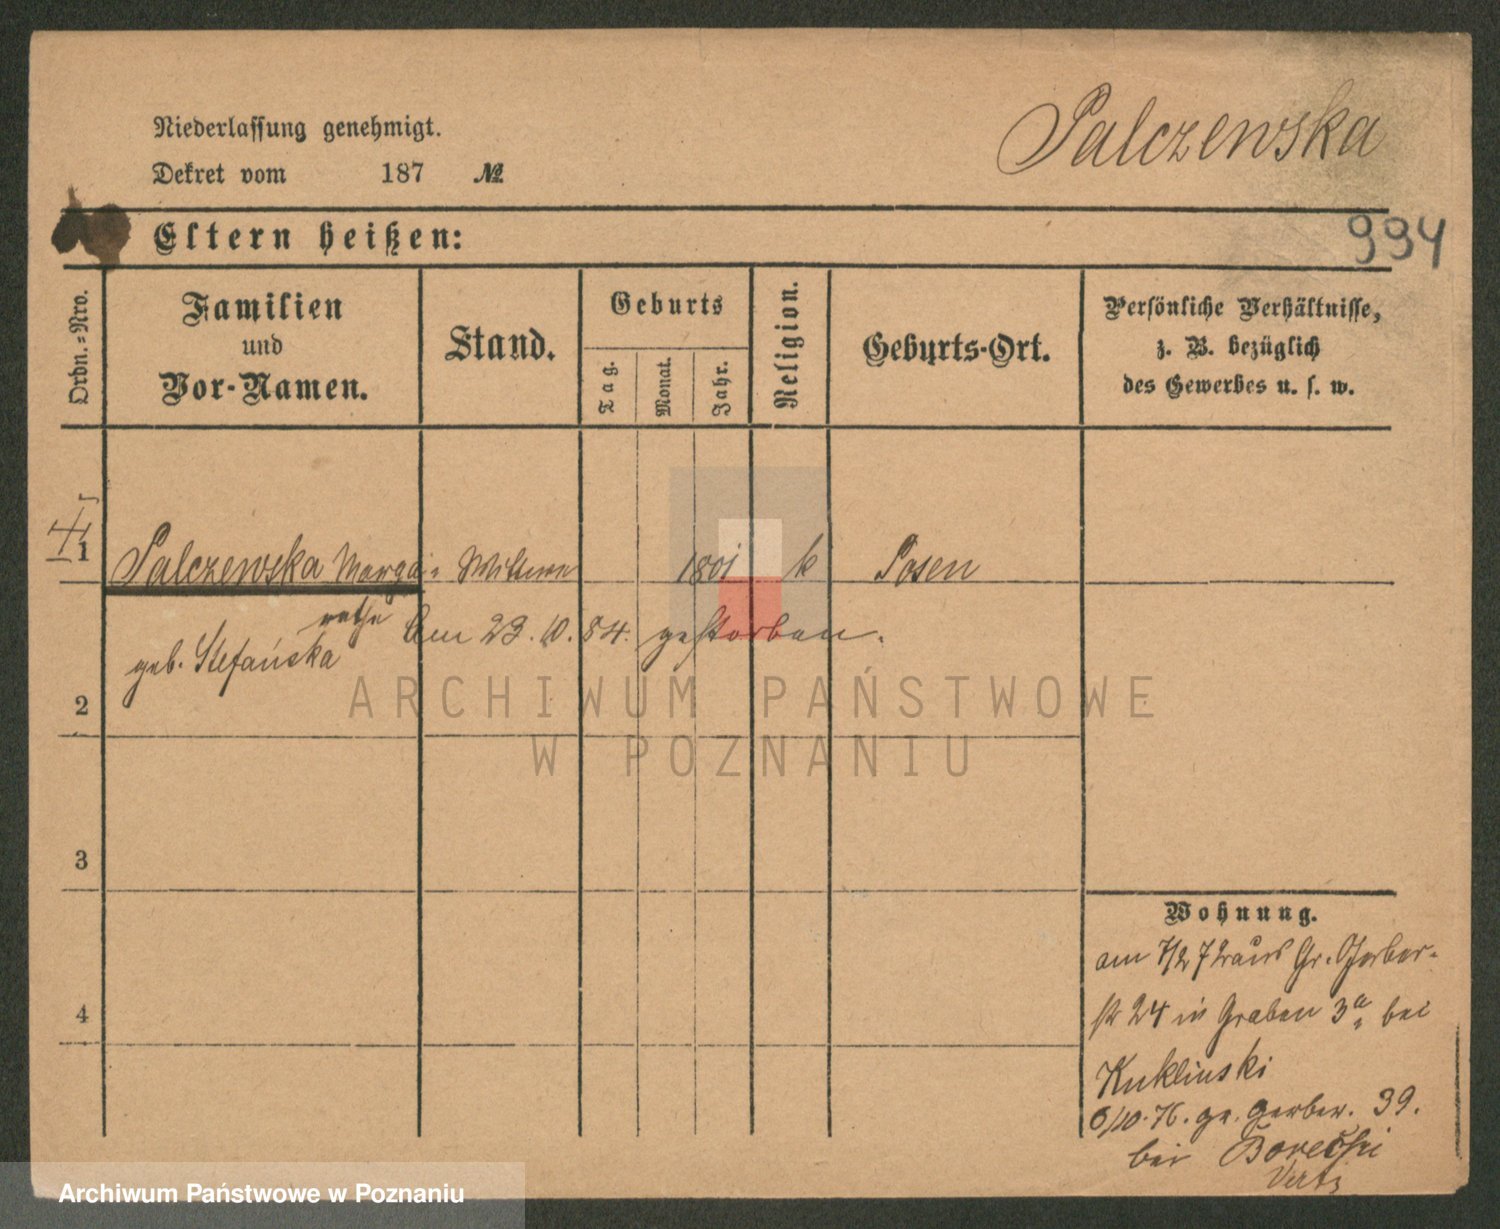 Niederlassung genehmigt.
Dekret vom 187 №
Palczewska
994
Eltern heißen:
Ordn.-Nro.
Familien
und
Vor-Namen.
Stand.
Geburts
Tag.
Monat.
Jahr.
Religion.
Geburts-Ort.
Persönliche Verhältnisse,
z. B. bezüglich
des Gewerbes u. s. w.
1 Palczewska Marga- Wittwe 1801 k Posen
rethe
geb. Stefańska
Am 23.10.84. gestorben.
2
3
4
Wohnung.
am 7/2 72 aus Gr. Gerber-
str 24 in Graben 3a bei
Kuklinski
6/10.76. gr. Gerber. 39.
bei
ARCHIWUM PAŃSTWOWE
W POZNANIU
Archiwum Państwowe w Poznaniu